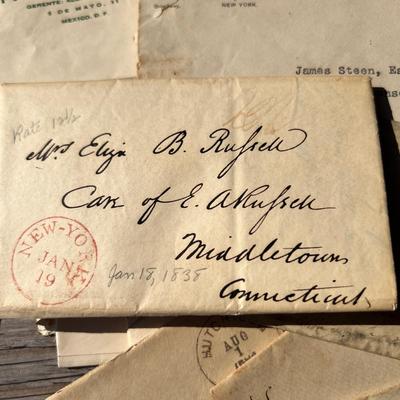 GERENTE:
5 DE MAYO, 11
MEXICO, D.F.
Broadway,
NEW YORK.
James Steen, Es
Rate 12½
Mrs Eliza B. Russell
Care of E. A Russell
Middletown
Connecticut
NEW-YORK
JAN
19
Jan 18, 1838
AUG
1